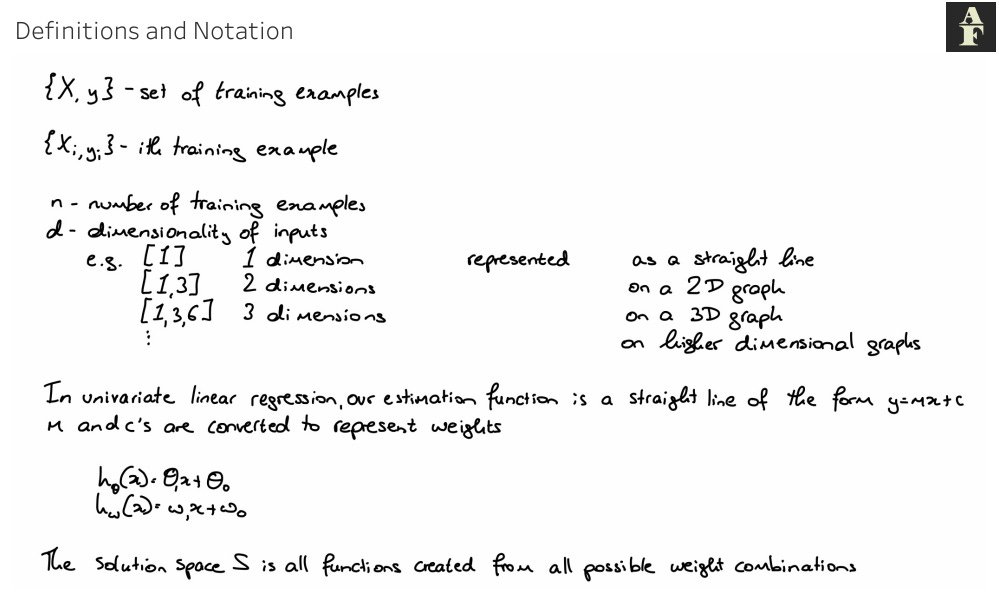 Definitions and Notation
A
F
{X, y} - set of training examples
{Xi, yi} - ith training example
n - number of training examples
d - dimensionality of inputs
e.g. [1] 1 dimension represented as a straight line
[1,3] 2 dimensions on a 2D graph
[1,3,6] 3 dimensions on a 3D graph
⋮ on higher dimensional graphs
In univariate linear regression, our estimation function is a straight line of the form y=mx+c
m and c's are converted to represent weights
hθ(x) = θ₁x + θ₀
hω(x) = ω₁x + ω₀
The solution space S is all functions created from all possible weight combinations